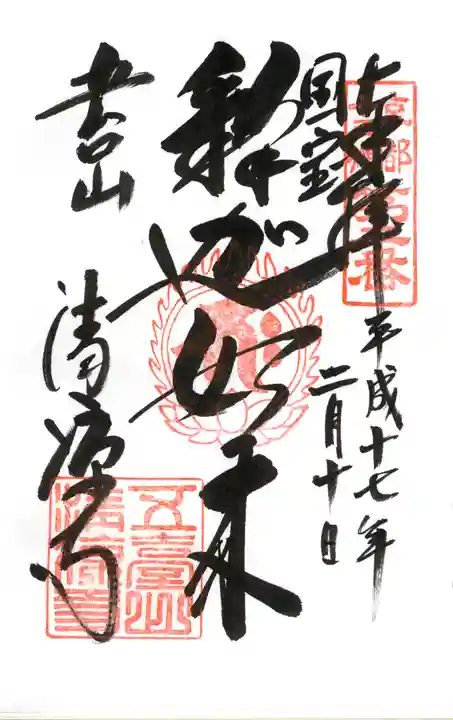 奉拝
平成十七年
二月十日
国宝
釈迦如来
五台山
清凉寺
五臺山